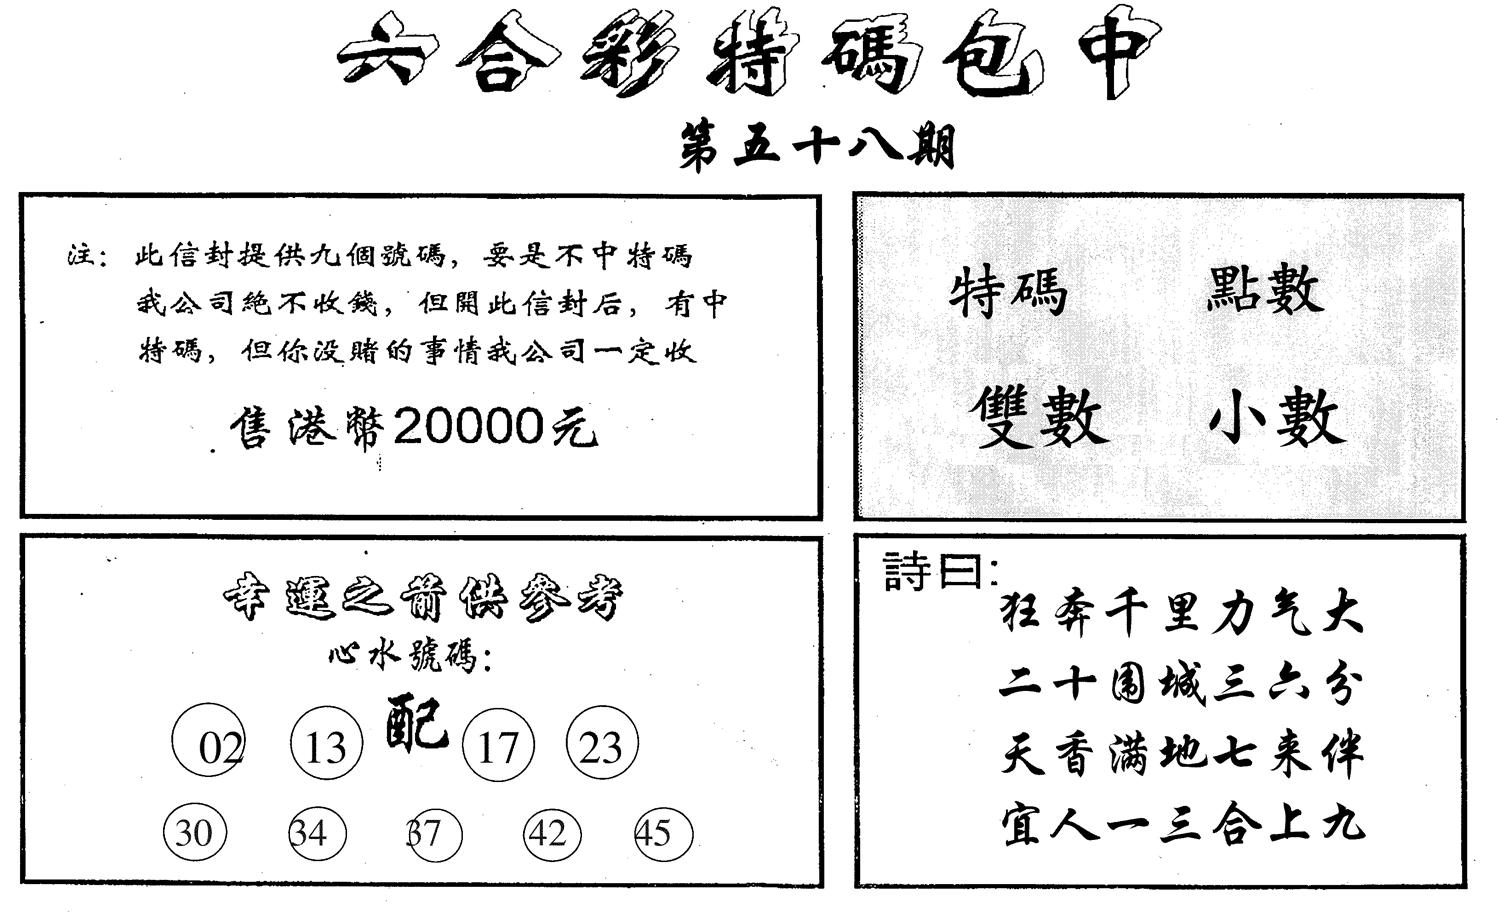 六合彩特碼包中
第五十八期
注：此信封提供九個號碼，要是不中特碼
我公司絕不收錢，但開此信封后，有中
特碼，但你没賭的事情我公司一定收
售港幣20000元
特碼 點數
雙數 小數
幸運之箭供參考
心水號碼：
配
02 13 17 23
30 34 37 42 45
詩曰：
狂奔千里力气大
二十围城三六分
天香满地七来伴
宜人一三合上九